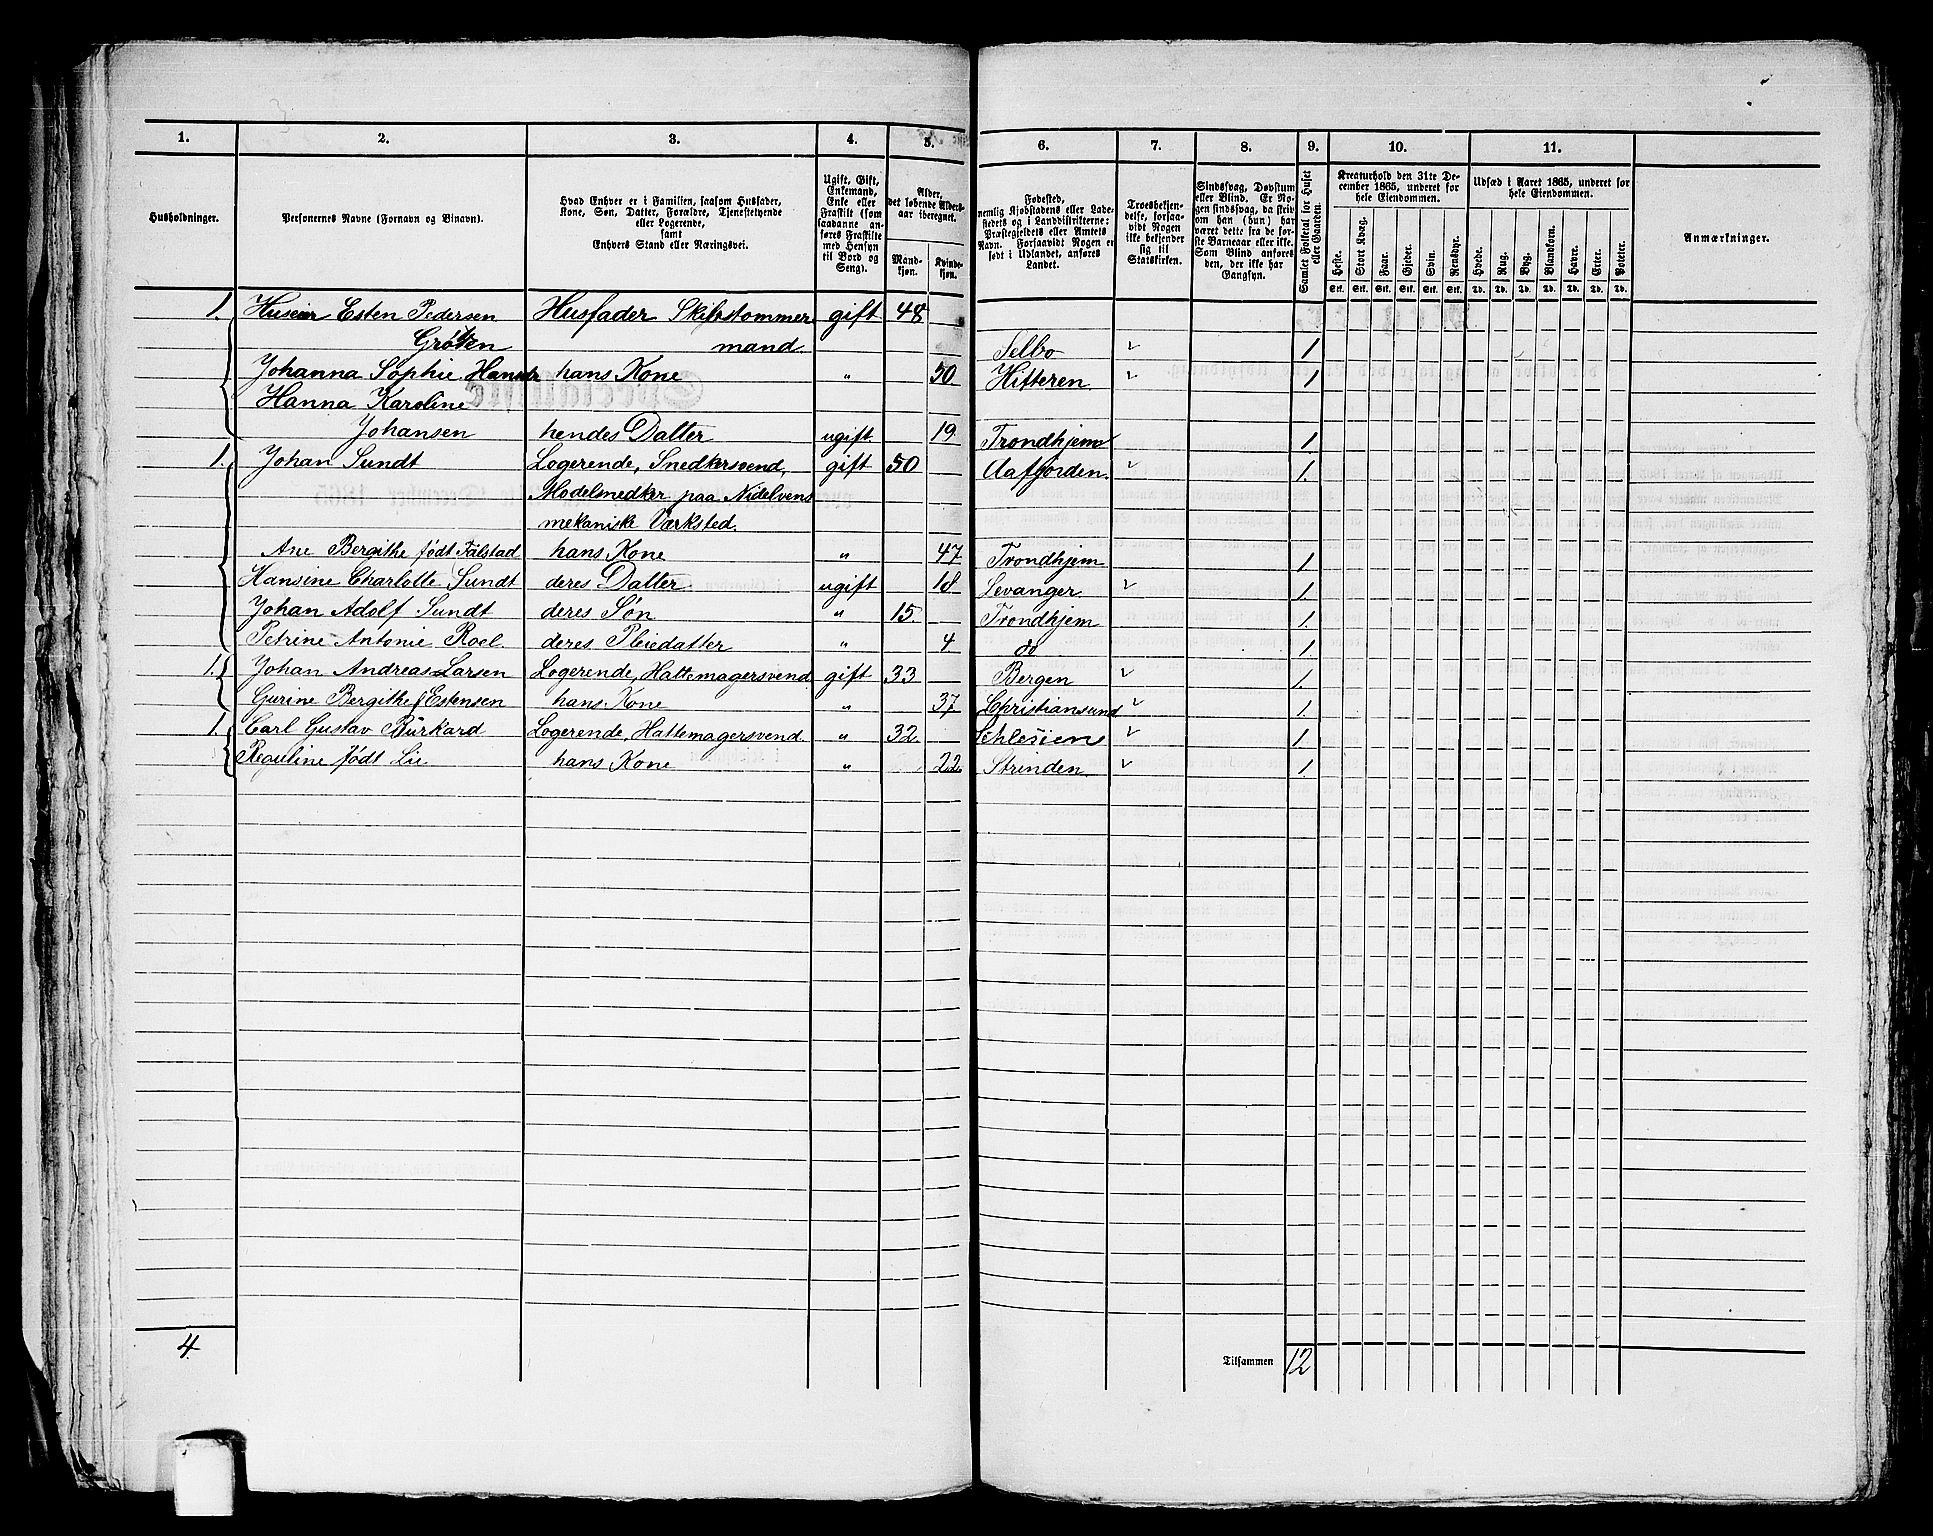 1. 2. 3. 4. 5. 6. 7. 8. 9. 10. 11.
Husholdninger.
Personernes Navne (Fornavn og Binavn).
Hvad Enhver er i Familien, saasom Husfader,
Kone, Søn, Datter, Forældre, Tjenestetyende
eller Logerende,
samt
Enhvers Stand eller Næringsvei.
Ugift, Gift,
Enkemand,
Enke eller
Fraskilt (som
saadanne an-
føres Fraskilte
med Hensyn
til Bord og
Seng).
Alder,
det løbende Alders-
aar iberegnet.
Mand-
kjøn.
Kvinde-
kjøn.
Fødested,
nemlig Kjøbstadens eller Lade-
stedets og i Landdistrikterne:
Præstegjeldets eller Amtets
Navn. Forsaavidt Nogen er
født i Udlandet, anføres
Landet.
Troesbekjen-
delse, forsaa-
vidt Nogen
ikke bekjender
sig til
Statskirken.
Sindssvag, Døvstum
eller Blind. Er No-
gen sindssvag, da skriv
om han (hun) har
været dette fra de før-
ste Barneaar eller ikke.
Som Blind anføres
den, der ikke har
Gangsyn.
Samlet Folketal for Huset
eller Gaarden.
Kreaturhold den 31te De-
cember 1865, underet for
hele Eiendommen.
Heste. Stort Kvæg. Faar. Gjeder. Svin. Rensdyr.
Stk. Stk. Stk. Stk. Stk. Stk.
Udsæd i Aaret 1865, underet for
hele Eiendommen.
Hvede. Rug. Byg. Blandkorn. Havre. Erter. Poteter.
Td. Td. Td. Td. Td. Td. Td.
Anmærkninger.
1. Huseier Esten Pedersen Husfader Skibstømmer gift 48
Grøtten mand. Selbo 1
Johanna Sophie Hansdr hans Kone " 50 Hitteren 1
Hanna Karoline
Johansen hendes Datter ugift 19 Trondhjem 1
1. Johan Sundt Logerende, Snedkersvend, gift 50 Aafjorden 1.
Modelsnedker paa Nidelvens
mekaniske Værksted.
Ane Bergithe født Falstad hans Kone " 47 Trondhjem 1.
Hansine Charlotte Sundt deres Datter ugift 18 Levanger 1.
Johan Adolf Sundt deres Søn " 15 Trondhjem 1.
Petrine Antonie Roel. deres Pleiedatter " 4. do 1.
1. Johan Andreas Larsen Logerende, Hattemagersvend gift 33 Bergen 1.
Gurine Bergithe f Estensen hans Kone " 37 Christiansund 1.
1. Carl Gustav Burkard Logerende, Hattemagersvend. " 32 Schlesien 1.
Reguline født Lie hans Kone " 22 Strinden 1.
4. Tilsammen 12